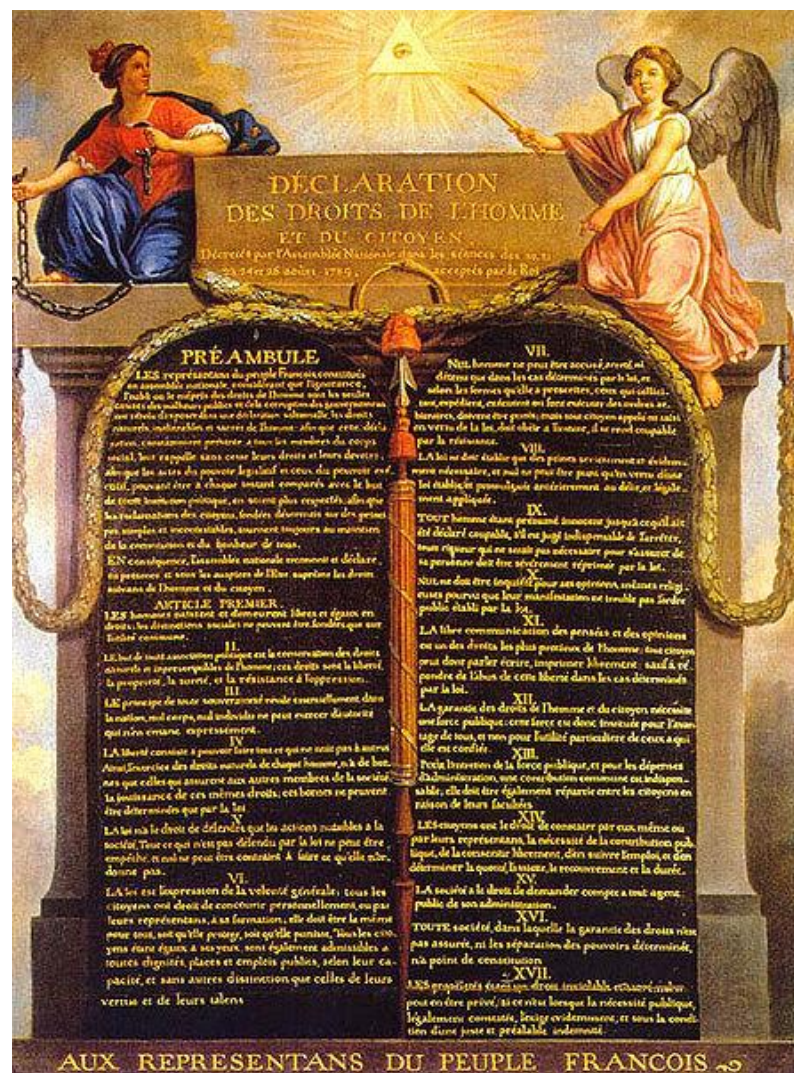 DÉCLARATION
DES DROITS DE L'HOMME
ET DU CITOYEN
Décretés par l'Assemblée Nationale dans les séances des 20, 21
23, 24 et 26 août 1789, acceptés par le Roi
PRÉAMBULE
LES représentans du peuple François, constitués
en assemblée nationale, considérant que l'ignorance,
l'oubli ou le mépris des droits de l'homme sont les seules
causes des malheurs publics et de la corruption des
dans une déclaration solemnelle, les droits
naturels, inaliénables et sacrés de l'homme; afin que cette décla
ration, constamment présente a tous les membres du corps
social, leur rappelle sans cesse leurs droits et leurs devoirs;
afin que les actes du pouvoir législatif et ceux du pouvoir exé
cutif, pouvant être à chaque instant comparés avec le but
de toute institution politique, en soient plus respectés; afin que
les réclamations des citoyens, fondées désormais sur des
pes simples et incontestables, tournent toujours au maintien
de la constitution et du bonheur de tous.
EN conséquence, l'assemblée nationale reconnoit et déclare,
en présence et sous les auspices de l'Etre suprême les droits
suivans de l'homme et du citoyen.
ARTICLE PREMIER
LES hommes naissent et demeurent libres et égaux en
droits; les distinctions sociales ne peuvent être fondées que sur
l'utilité commune.
II.
LE but de toute association politique est la conservation des droits
naturels et imprescriptibles de l'homme; ces droits sont la liberté,
la propriété, la sureté, et la résistance à l'oppression.
III
LE principe de toute souveraineté réside essentiellement dans
la nation, nul corps, nul individu ne peut exercer d'autorité
qui n'en emane expressément.
IV
LA liberté consiste à pouvoir faire tout ce qui ne nuit pas à autrui
Ainsi, l'exercice des droits naturels de chaque homme, n'a de bor
nes que celles qui assurent aux autres membres de la société
la jouissance de ces mêmes droits; ces bornes ne peuvent
être déterminées que par la loi
V
LA loi n'a le droit de défendre que les actions nuisibles à la
société. Tout ce qui n'est pas défendu par la loi ne peut être
empêché, et nul ne peut être contraint à faire ce qu'elle n'or
donne pas.
VI.
LA loi est l'expression de la volonté générale; tous les
citoyens ont droit de concourir personnellement, ou par
leurs représentans, à sa formation; elle doit être la même
pour tous, soit qu'elle protege, soit qu'elle punisse. Tous les cito
yens étant égaux à ses yeux, sont également admissibles à
toutes dignités, places et emplois publics, selon leur ca
pacité, et sans autres distinction que celles de leurs
vertus et de leurs talens
VII.
NUL homme ne peut être accusé, arreté, ni
détenu que dans les cas déterminés par la loi, et
selon les formes qu'elle a prescrites, ceux qui sollici
tent, expédient, exécutent ou font exécuter des ordres ar
bitraires, doivent être punis; mais tout citoyen appelé ou saisi
en vertu de la loi, doit obéir a l'instant, il se rend coupable
par la résistance.
VIII.
LA loi ne doit établir que des peines strictement et évidem
ment nécessaire, et nul ne peut être puni qu'en vertu d'une
loi établie et promulguée antérieurement au délit, et légale
ment appliquée.
IX.
TOUT homme étant présumé innocent jusqu'à ce qu'il ait
été déclaré coupable, s'il est jugé indispensable de l'arrêter,
toute rigueur qui ne serait pas nécessaire pour s'assurer de
sa personne doit être sévèrement réprimée par la loi.
X.
NUL ne doit être inquiété pour ses opinions, mêmes religi
euses pourvu que leur manifestation ne trouble pas l'ordre
public établi par la loi.
XI.
LA libre communication des pensées et des opinions
est un des droits les plus précieux de l'homme: tout citoyen
peut donc parler écrire, imprimer librement: sauf à ré
pondre de l'abus de cette liberté dans les cas déterminés
par la loi.
XII.
LA garantie des droits de l'homme et du citoyen nécessite
une force publique: cette force est donc instituée pour l'avan
tage de tous, et non pour l'utilité particuliere de ceux a qui
elle est confiée.
XIII.
Pour l'entretien de la force publique, et pour les dépenses
d'administration, une contribution commune est indispen
sable; elle doit être également répartie entre les citoyens en
raison de leurs facultées
XIV.
LES citoyens ont le droit de constater par eux même ou
par leurs représentans, la nécessité de la contribution pub
lique, de la consentir librement, d'en suivre l'emploi, et d'en
déterminer la quotité, l'assiette, le recouvrement et la durée.
XV.
LA société a le droit de demander compte a tout agent
public de son administration.
XVI.
TOUTE société, dans laquelle la garantie des droits n'est
pas assurée, ni les séparation des pouvoirs déterminée,
n'a point de constitution
XVII.
LES propriétés étant un droit inviolable et sacré, nul ne
peut en être privé, si ce n'est lorsque la nécessité publique,
légalement constatée, l'exige evidemment, et sous la condi
tion d'une juste et préalable indemnité.
AUX REPRESENTANS DU PEUPLE FRANCOIS